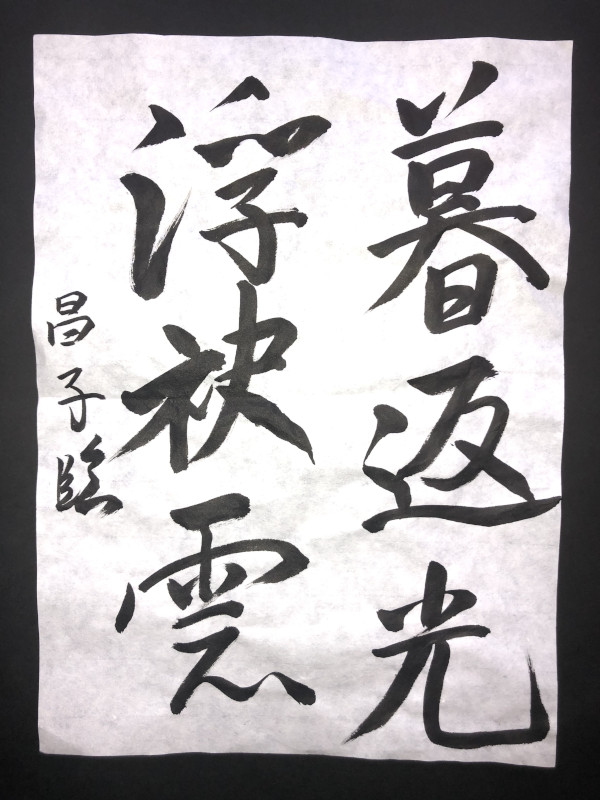 暮返光
浮袂雲
昌子臨